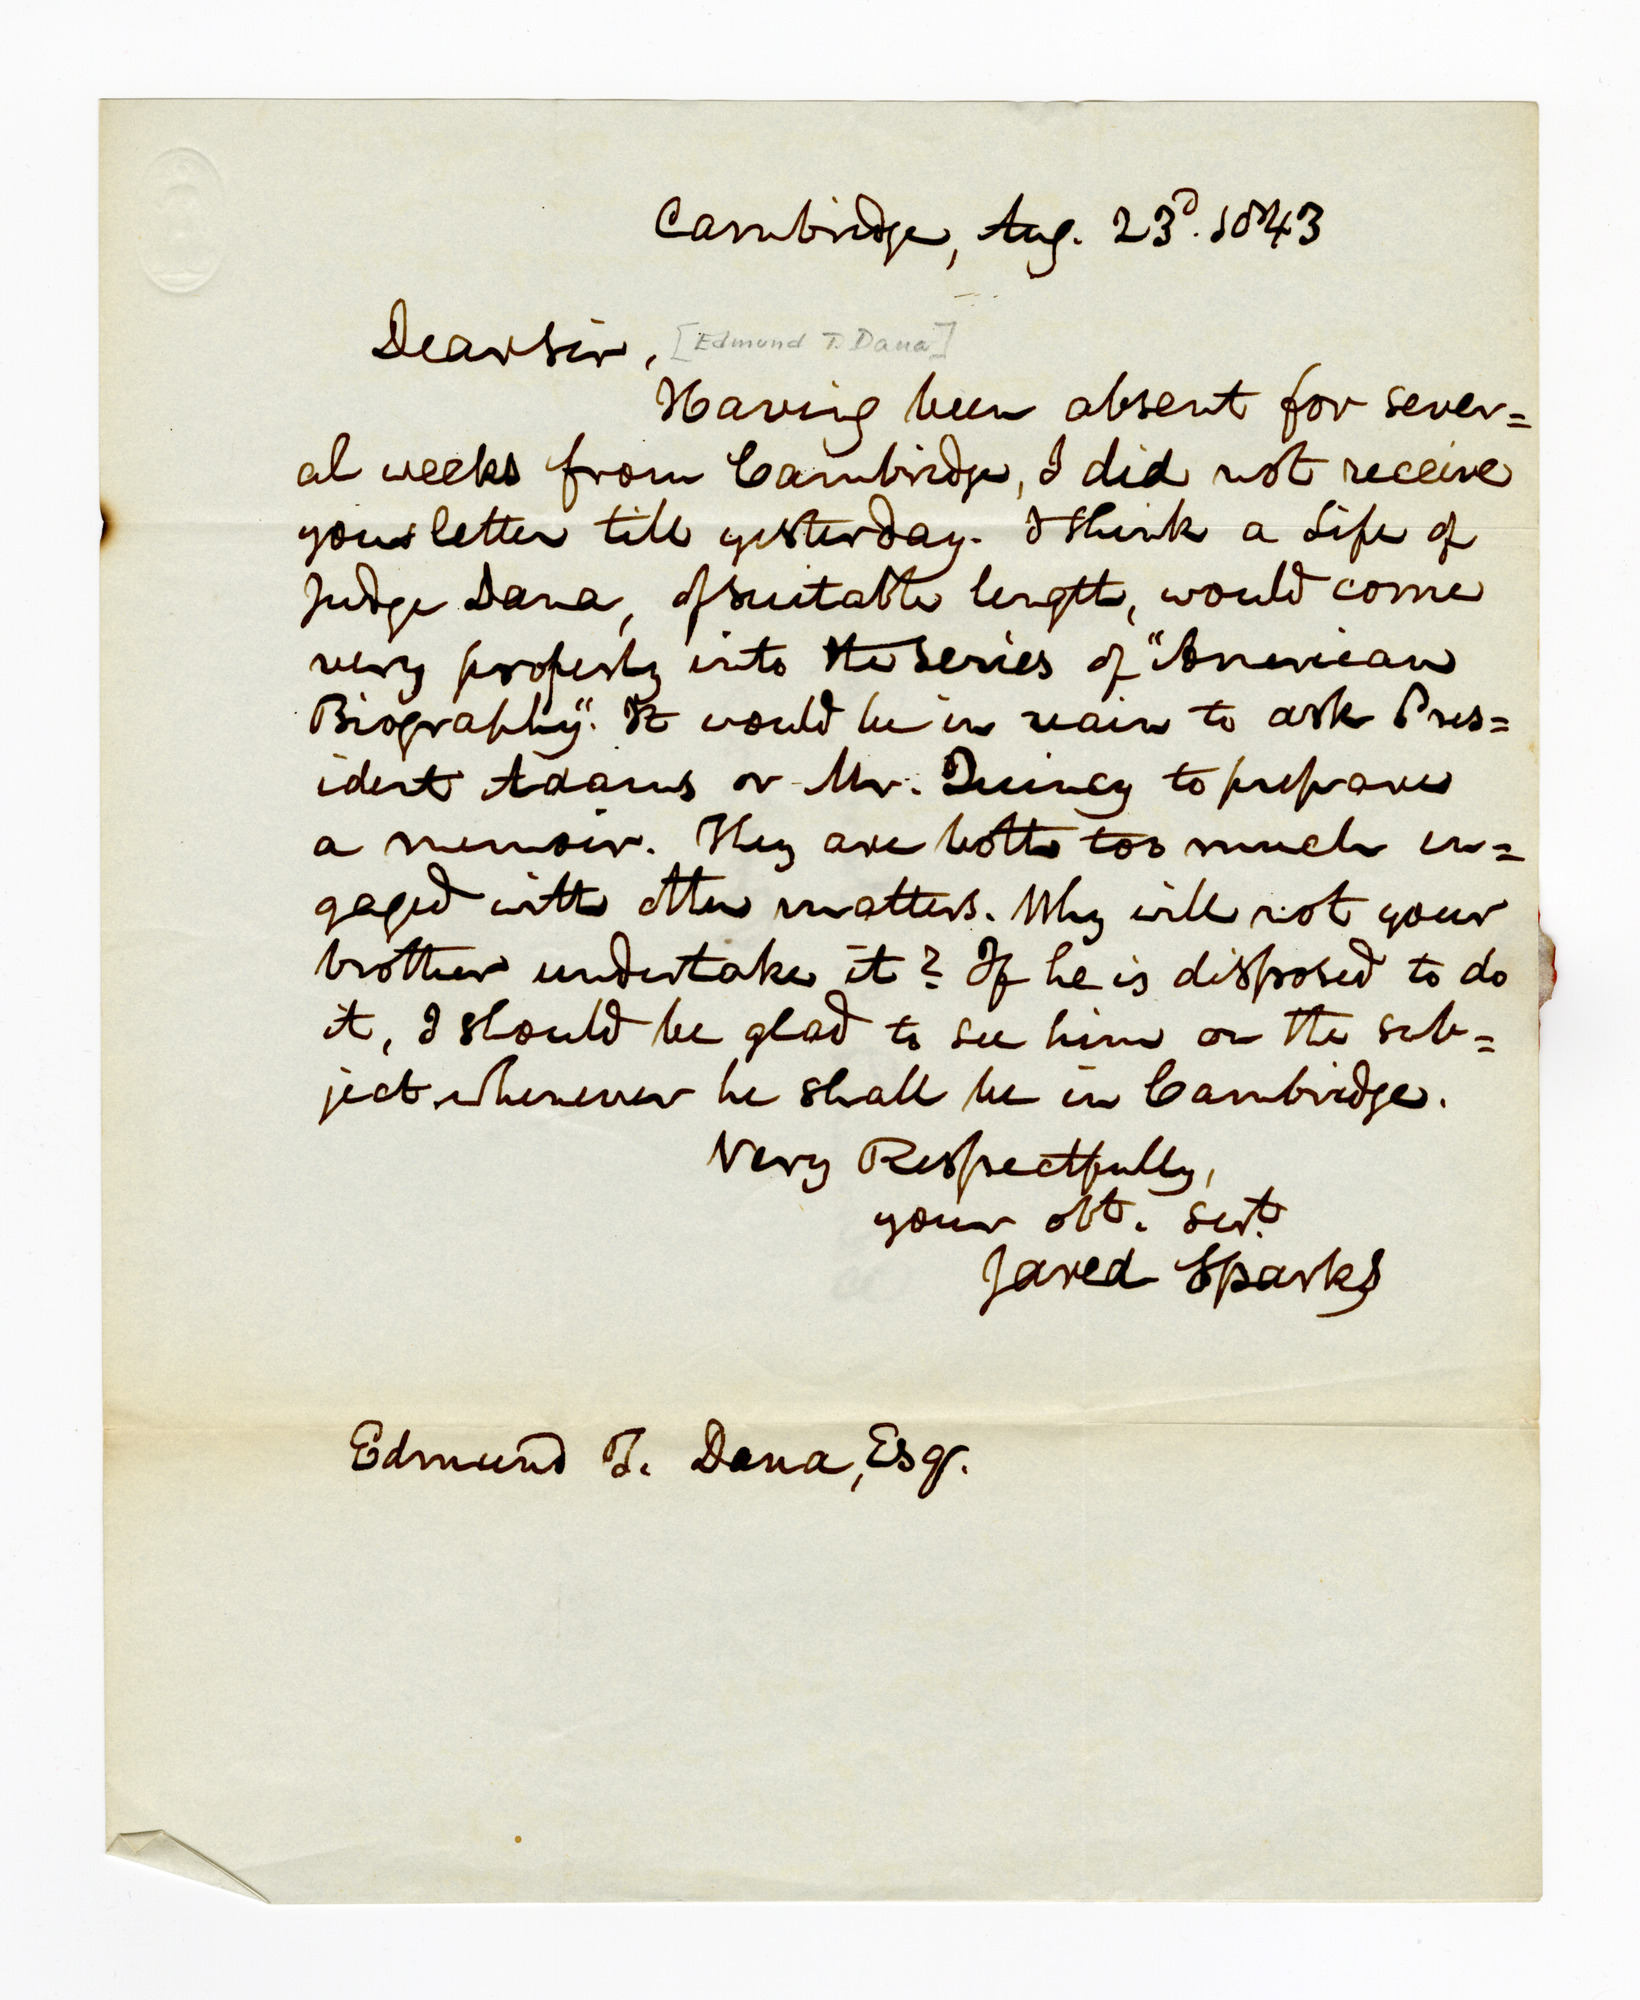 Cambridge, Aug. 23d. 1843
Dear Sir, [Edmund T. Dana]
Having been absent for sever=
al weeks from Cambridge, I did not receive
your letter till yesterday. I think a Life of
Judge Dana, of suitable length, would come
very properly into the series of "American
Biography". It would be in vain to ask Pres=
ident Adams or Mr. Quincy to prepare
a memoir. They are both too much en=
gaged with other matters. Why will not your
brother undertake it? If he is disposed to do
it, I should be glad to see him on the sub=
ject whenever he shall be in Cambridge.
Very Respectfully,
your obt. Servt.
Jared Sparks
Edmund T. Dana, Esqr.